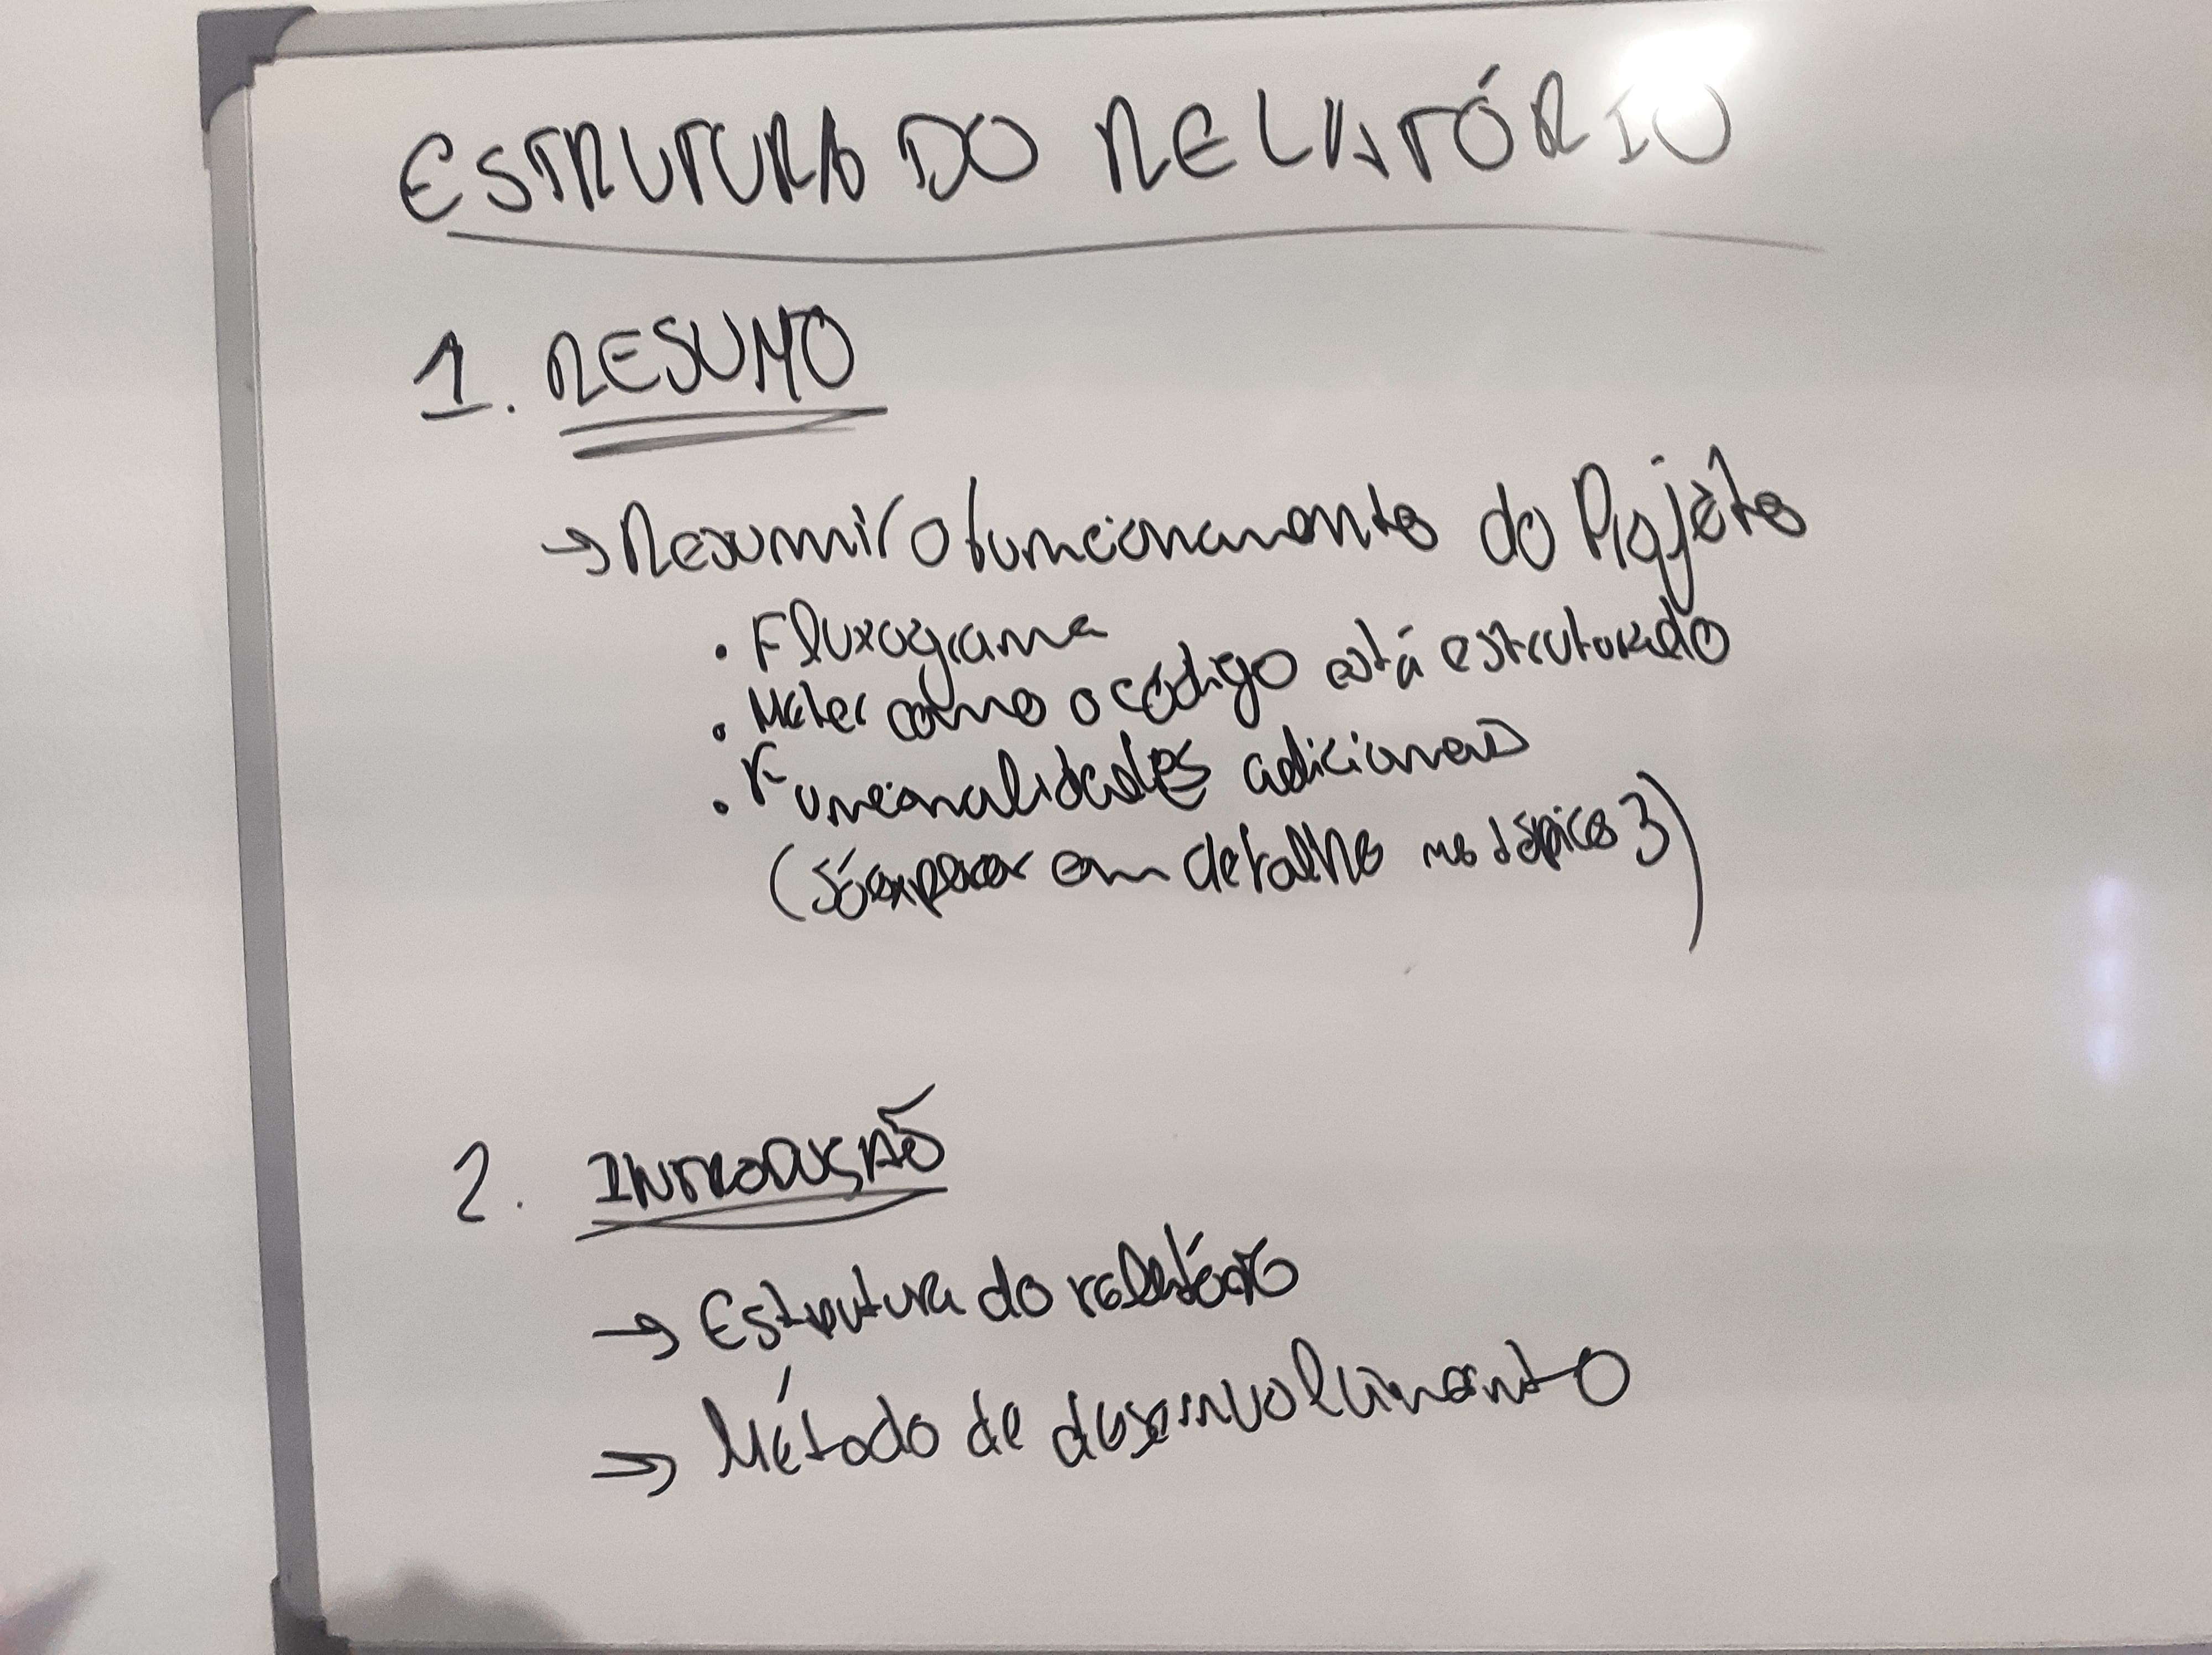 ESTRUTURA DO RELATÓRIO
1. RESUMO
→ Resumir o funcionamento do Projèto
• Fluxograma
• Meter como o código está estruturado
• Funcionalidades adicionais
(Só expor em detalhe no tópico 3)
2. INTRODUÇÃO
→ Estrutura do relatório
→ Método de desenvolvimento